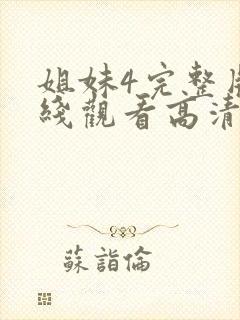 姐妹4完整
綫觀看高清
蘇詣倫